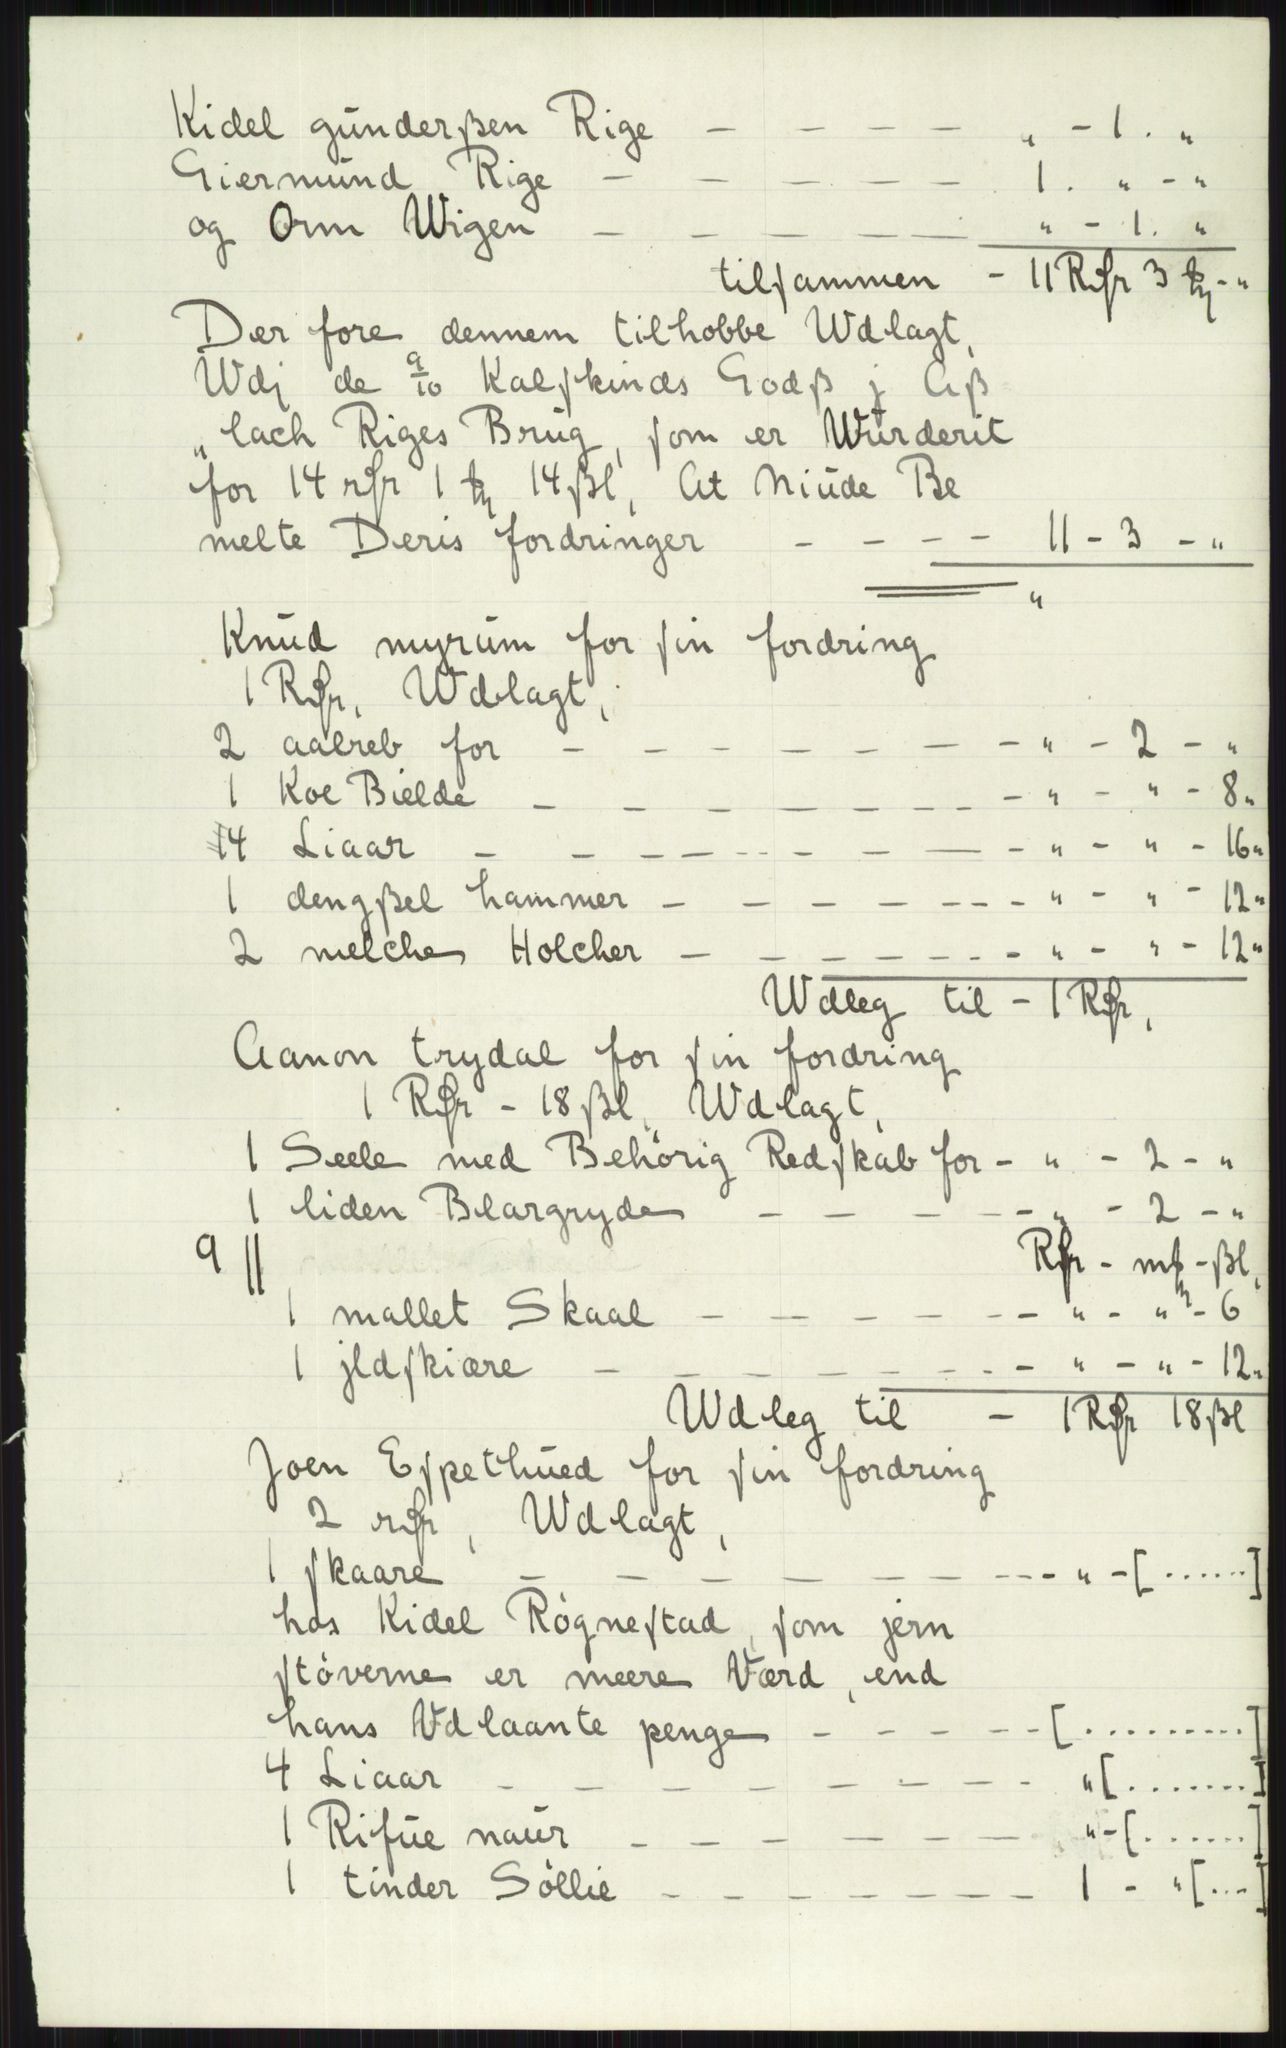 Kidel gunderßen Rige — — — — „ - 1 . „
Giermund Rige — — — — — 1 . „ - „
og Orm Wigen — — — — — „ - 1. „
tilsammen - 11 Rdr 3 mk - „
Der fore dennem tilhobbe Wdlagt,
Wdj de 9/10 Kalfskinds Godß j Aß
„lach Riges Brug, som er Wurderit
for 14 rdr 1 mk 14 ßl, At Niude Be
melte Deris fordringer - - - - 11 - 3 - „
„
Knud myrum for sin fordring
1 Rdr, Wdlagt,
2 aalreb for — — — — — — - „ - 2 - „
1 Koe Bielde — — — — — — - „ - „ - 8 „
14 Liaar — — — — — — - „ - „ - 16 „
1 dengßel hammer — — — — — - „ - „ - 12 „
2 melche Holcher — — — — — - „ - „ - 12 „
Wdleg til - 1 Rdr,
Aanon trydal for sin fordring
1 Rdr - 18 ßl, Wdlagt,
1 Seele med Behörig Redskab for - „ - 2 - „
1 liden Blargryde — — — — - „ - 2 - „
9 || Rdr - mk - ßl,
1 mallet Skaal — — — — — - „ - „ - 6
1 jldskiære — — — — — - „ - „ - 12 „
Wdleg til - 1 Rdr 18 ßl
Joen Espethued for sin fordring
2 rdr, Wdlagt,
1 skaare — — — — — — - „ - [......]
hos Kidel Rögnestad, som jern
stöverne er meere Værd, end
hans Vdlaante penge - - - - - [.........]
4 Liaar — — — — — — — „ [.......]
1 Rifue naur — — — — — — „ - [......]
1 tinder Söllie — — — — — — 1 - „ [...]